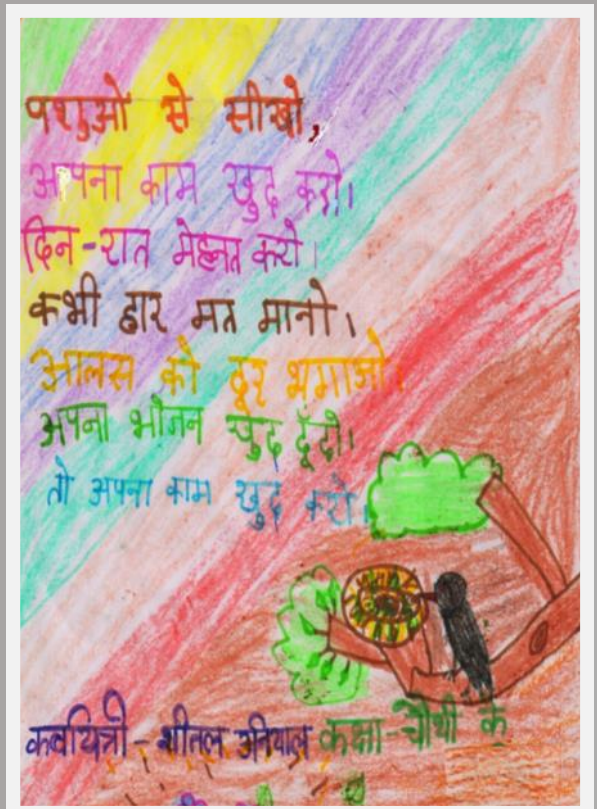 पशुओ से सीखो,
अपना काम खुद करो।
दिन-रात मेहनत करो।
कभी हार मत मानो।
आलस को दूर भगाओ।
अपना भोजन खुद ढूँढो।
तो अपना काम खुद करो।
कवयित्री - शीतल उनियाल कक्षा-चौथी के